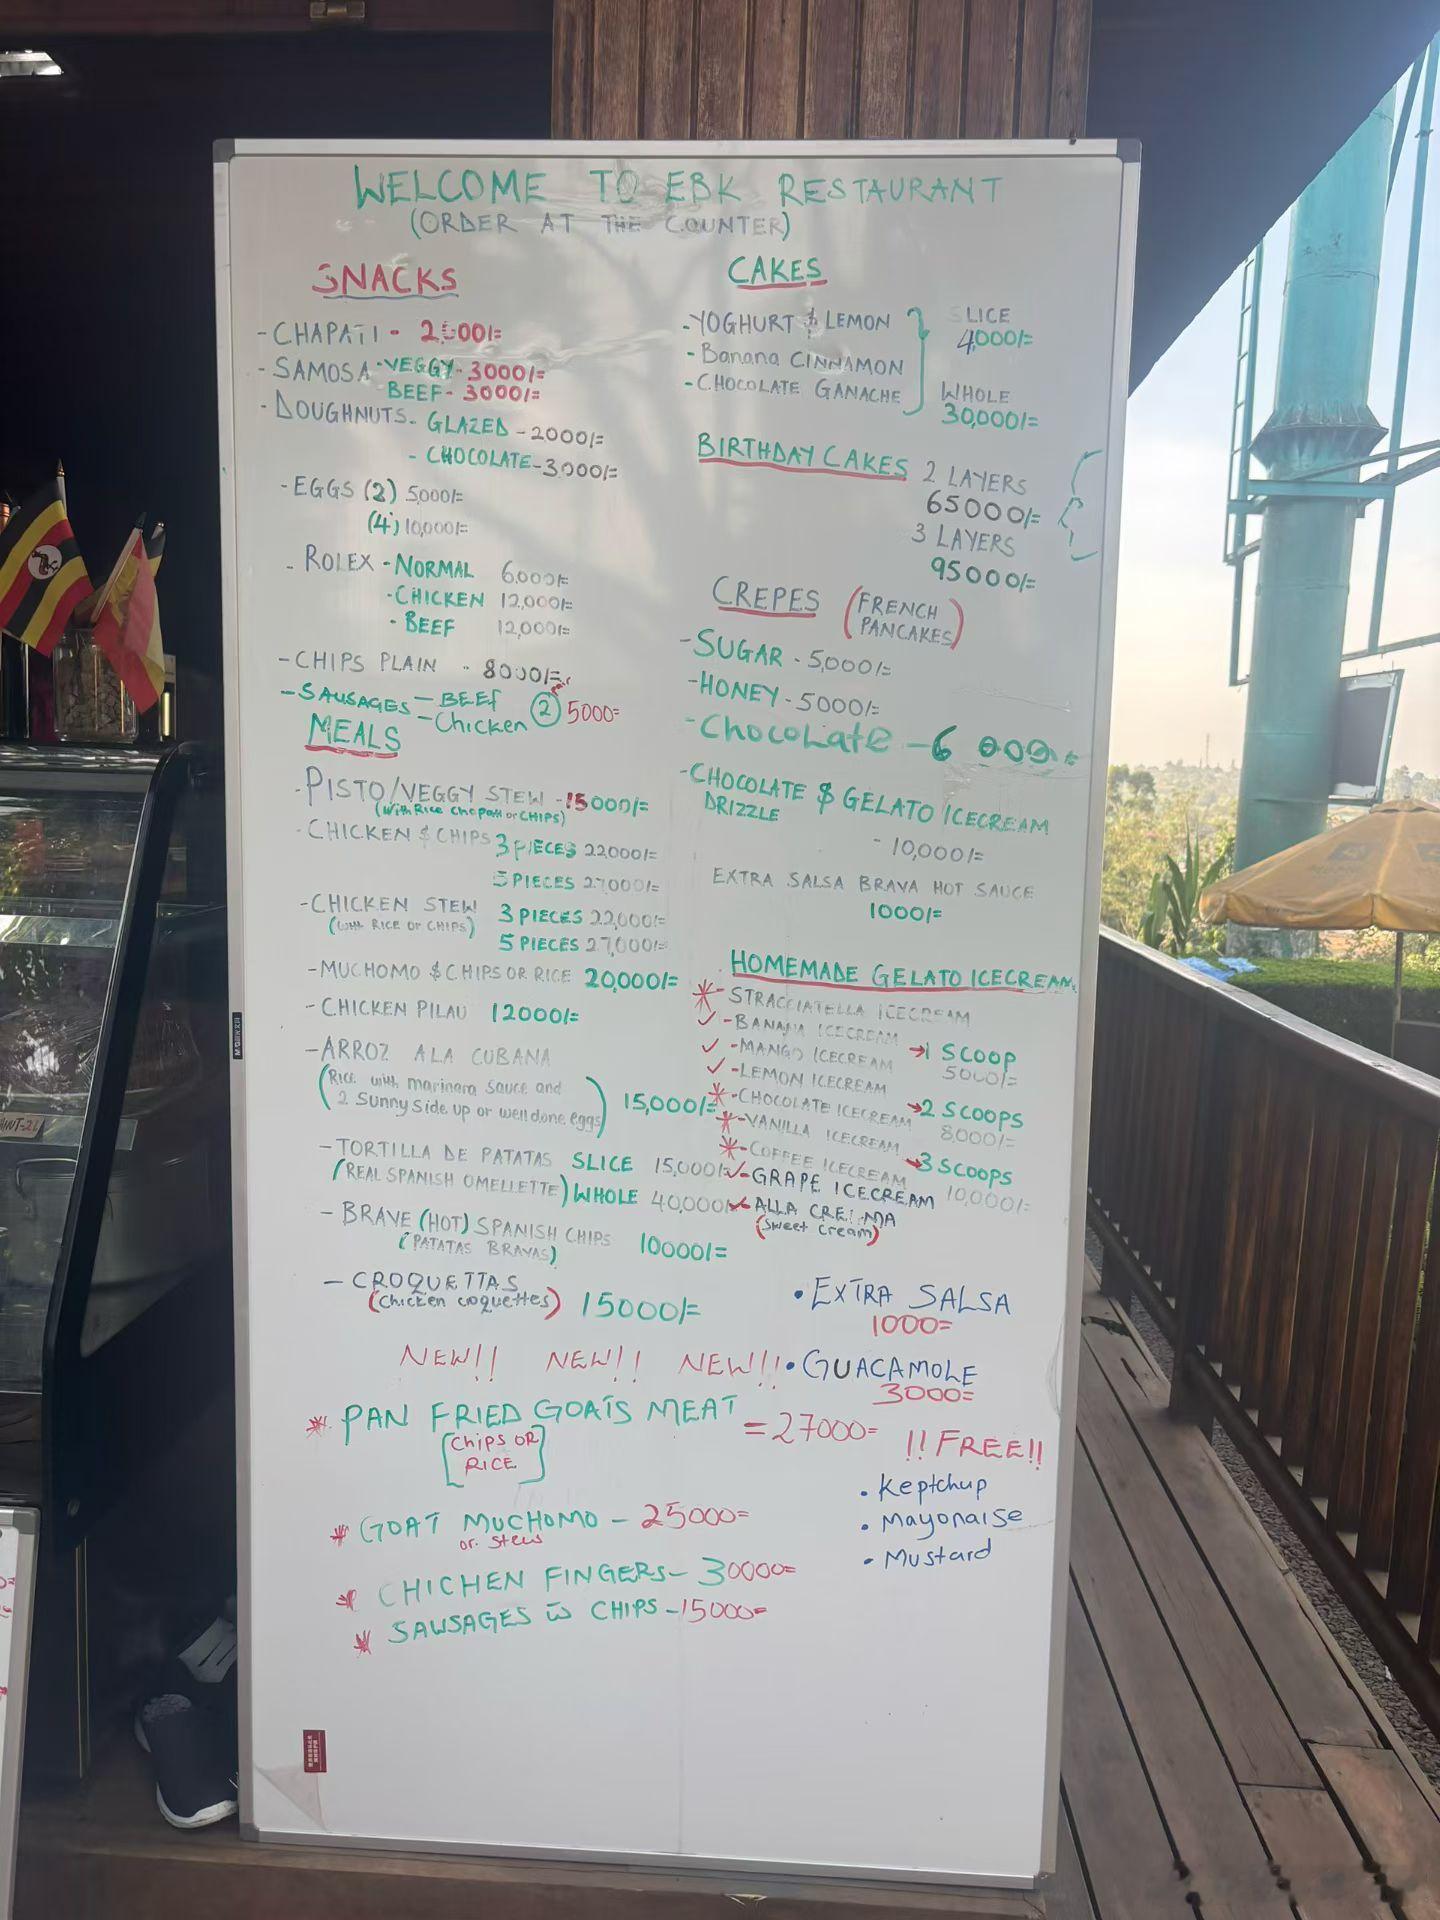 WELCOME TO EBK RESTAURANT
(ORDER AT THE COUNTER)
SNACKS
- CHAPATI - 2000/=
- SAMOSA - VEGGY - 3000/=
BEEF - 3000/=
- DOUGHNUTS - GLAZED - 2000/=
- CHOCOLATE - 3000/=
- EGGS (2) 5,000/=
(4) 10,000/=
- ROLEX - NORMAL 6,000/=
- CHICKEN 12,000/=
- BEEF 12,000/=
- CHIPS PLAIN - 8000/=
- SAUSAGES - BEEF
- Chicken 2 pair 5000=
MEALS
- PISTO/VEGGY STEW - 15000/=
(with Rice Chapati or CHIPS)
- CHICKEN & CHIPS 3 PIECES 22,000/=
5 PIECES 27,000/=
- CHICKEN STEW 3 PIECES 22,000/=
(with RICE or CHIPS)
5 PIECES 27,000/=
- MUCHOMO & CHIPS OR RICE 20,000/=
- CHICKEN PILAU 12000/=
- ARROZ ALA CUBANA
(Rice with marinara sauce and
2 Sunny Side up or well done eggs) 15,000/=
- TORTILLA DE PATATAS SLICE 15,000/=
(REAL SPANISH OMELLETTE) WHOLE 40,000/=
- BRAVE (HOT) SPANISH CHIPS 10000/=
(PATATAS BRAVAS)
- CROQUETTAS
(Chicken coquettes) 15000/=
NEW!! NEW!! NEW!!
* PAN FRIED GOATS MEAT = 27000=
[Chips OR
RICE]
* GOAT MUCHOMO - 25000=
or stew
* CHICHEN FINGERS - 30000=
* SAUSAGES w CHIPS - 15000=
CAKES
- YOGHURT & LEMON
- Banana CINNAMON
- CHOCOLATE GANACHE
SLICE
4,000/=
WHOLE
30,000/=
BIRTHDAY CAKES 2 LAYERS
65000/=
3 LAYERS
95000/=
CREPES (FRENCH
PANCAKES)
- SUGAR - 5,000/=
- HONEY - 5000/=
- Chocolate - 6000/=
- CHOCOLATE & GELATO ICECREAM
DRIZZLE
- 10,000/=
EXTRA SALSA BRAVA HOT SAUCE
1000/=
HOMEMADE GELATO ICECREAM
* - STRACCIATELLA ICECREAM
✓ - BANANA ICECREAM
✓ - MANGO ICECREAM
✓ - LEMON ICECREAM
* - CHOCOLATE ICECREAM
* - VANILLA ICECREAM
* - COFFEE ICECREAM
✓ - GRAPE ICECREAM
✓ - ALLA CREMA
(Sweet cream)
→ 1 SCOOP
5000/=
→ 2 SCOOPS
8,000/=
→ 3 SCOOPS
10,000/=
• EXTRA SALSA
1000=
• GUACAMOLE
3000=
!! FREE!!
• Keptchup
• Mayonaise
• Mustard